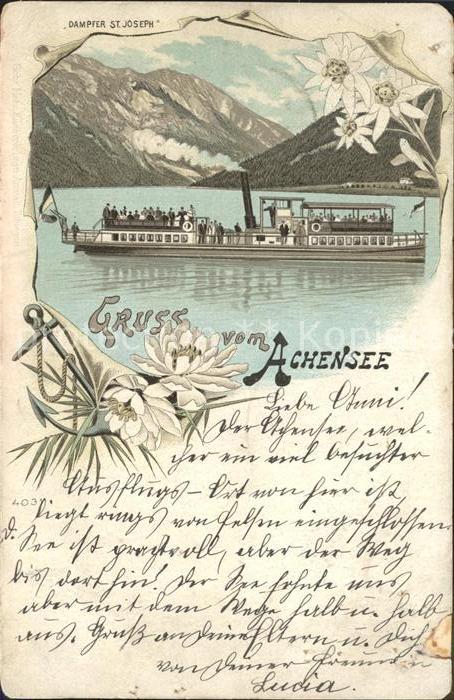 „DAMPFER ST. JOSEPH“
GRUSS vom ACHENSEE
Liebe Anni!
Der Achensee, wel-
cher ein viel besuchter
Ausflugs-Ort von hier ist,
liegt rings von Felsen eingeschlossen.
D. See ist pragtvoll, aber der Weg
bis dorthin! Der See sohnte uns
aber mit dem Wege halb u. halb
aus. Gruß an deine Eltern u. Dich
von deiner Freundin
Lucia.
403